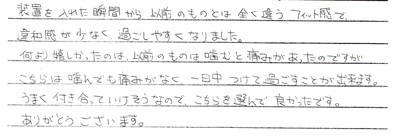 装置を入れた瞬間から以前のものとは全く違うフィット感で、
違和感が少なく過ごしやすくなりました。
何より嬉しかったのは、以前のものは噛むと痛みがあったのですが
こちらは噛んでも痛みがなく一日中つけて過ごすことが出来ます。
うまく付き合っていけそうなので、こちらを選んで良かったです。
ありがとうございます。